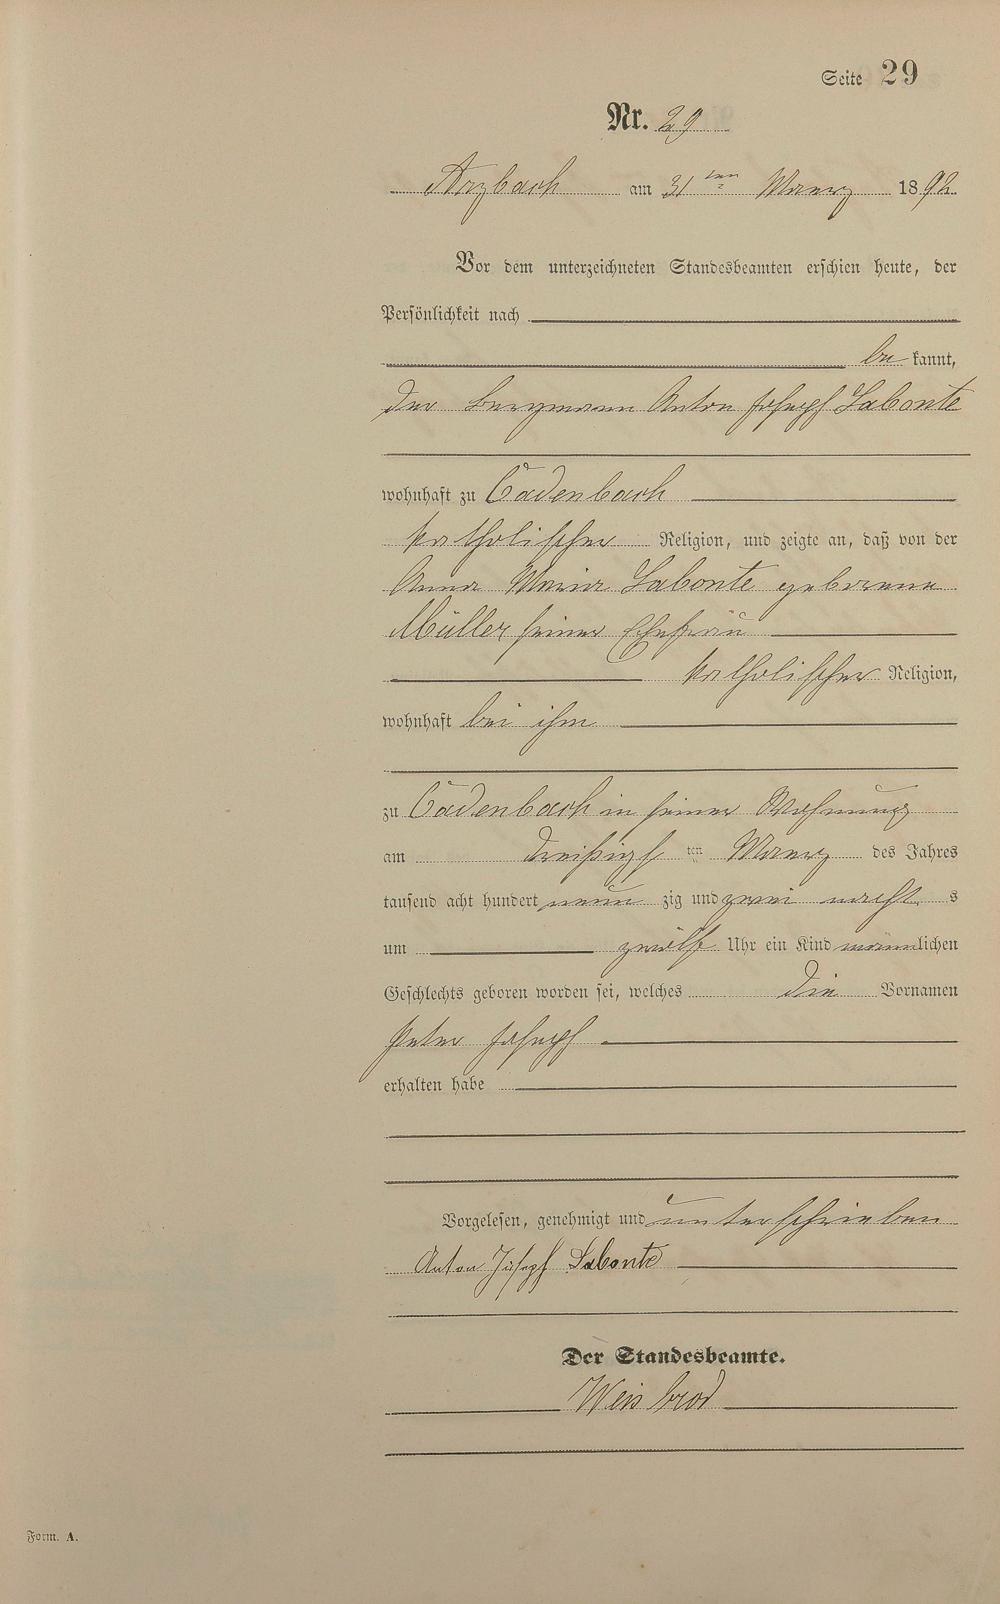 Seite 29
Nr. 29
Arzbach am 31ten Maerz 1892
Vor dem unterzeichneten Standesbeamten erschien heute, der
Persönlichkeit nach
be kannt,
der Bergmann Anton Joseph Labonte
wohnhaft zu Cadenbach
katholischer Religion, und zeigte an, daß von der
Anna Maria Labonte geborene
Müller seiner Ehefrau
katholischer Religion,
wohnhaft bei ihm
zu Cadenbach in seiner Wohnung
am dreißigst ten Maerz des Jahres
tausend acht hundert neun zig und zwei nacht s
um zwölf Uhr ein Kind männlichen
Geschlechts geboren worden sei, welches die Vornamen
Peter Joseph
erhalten habe
Vorgelesen, genehmigt und unterschrieben
Anton Joseph Labonte
Der Standesbeamte.
Weisbrod
Form. A.